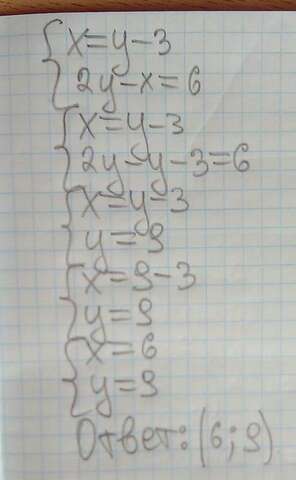 x=y-3
2y-x=6
x=y-3
2y-y-3=6
x=y-3
y=9
x=9-3
y=9
x=6
y=9
Ответ: (6;9)